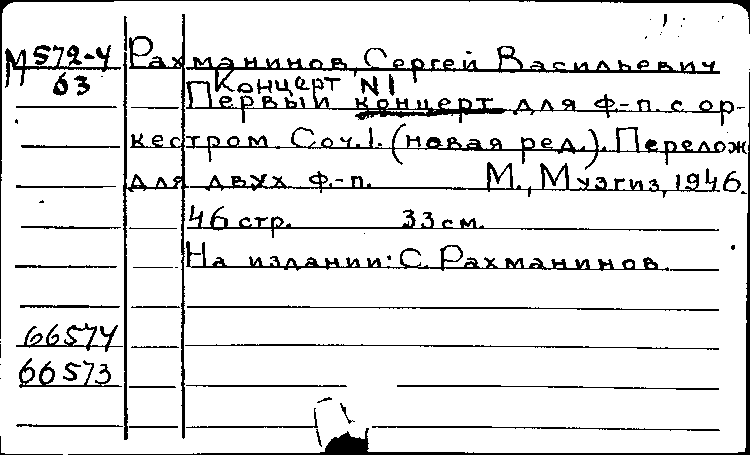 М 572-4 Рахманинов, Сергей Васильевич
63 Концерт N1
Первый концерт для ф-п. с ор-
кестром. Соч.1. (новая ред.). Перелож
для двух ф.-п. М., Музгиз, 1946.
46 стр. 33 см.
На издании: С. Рахманинов.
66574
66573